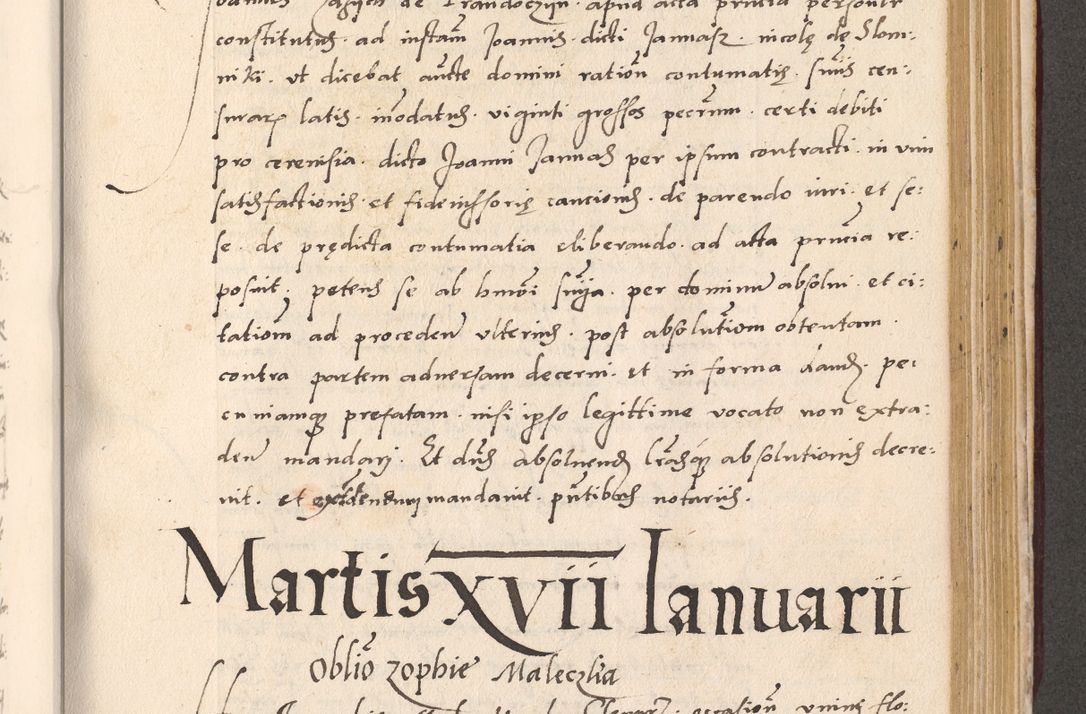 constitutus · ad instam̄ Joannis · dicti Jannasz · nicolę de Slom:
niki · ut dicebat aūcte domini ration̄ contumatię · suis cen:
surar̄ latis · inodatus · viginti grossos pecūm · certi debiti
pro cerevisia · dicto Joanni Jannas per ipsum contracti · in vim
satisfactionis · et fideiussorię cautionis · de parendo iuri · et se:
se · de prędicta contumatia eliberando · ad acta pn̄cia re:
posuit · petens se ab hmōi sn̄ia · per dominu absolvi · et ci:
tationem ad proceden̄ ulterius · post absolution̄ obtentam ·
contra partem adversam decerni · et in forma · pe:
cuniamque prefatam · nisi ipso legittime vocato non extra:
den̄ mandari · Et dn̄s absolvend l̄rasque absolutionis decre:
vit · et extdendum mandavit · pn̄tibus notariis ·
Martis XVII Ianuarii
Oblio zophie Maleczkia